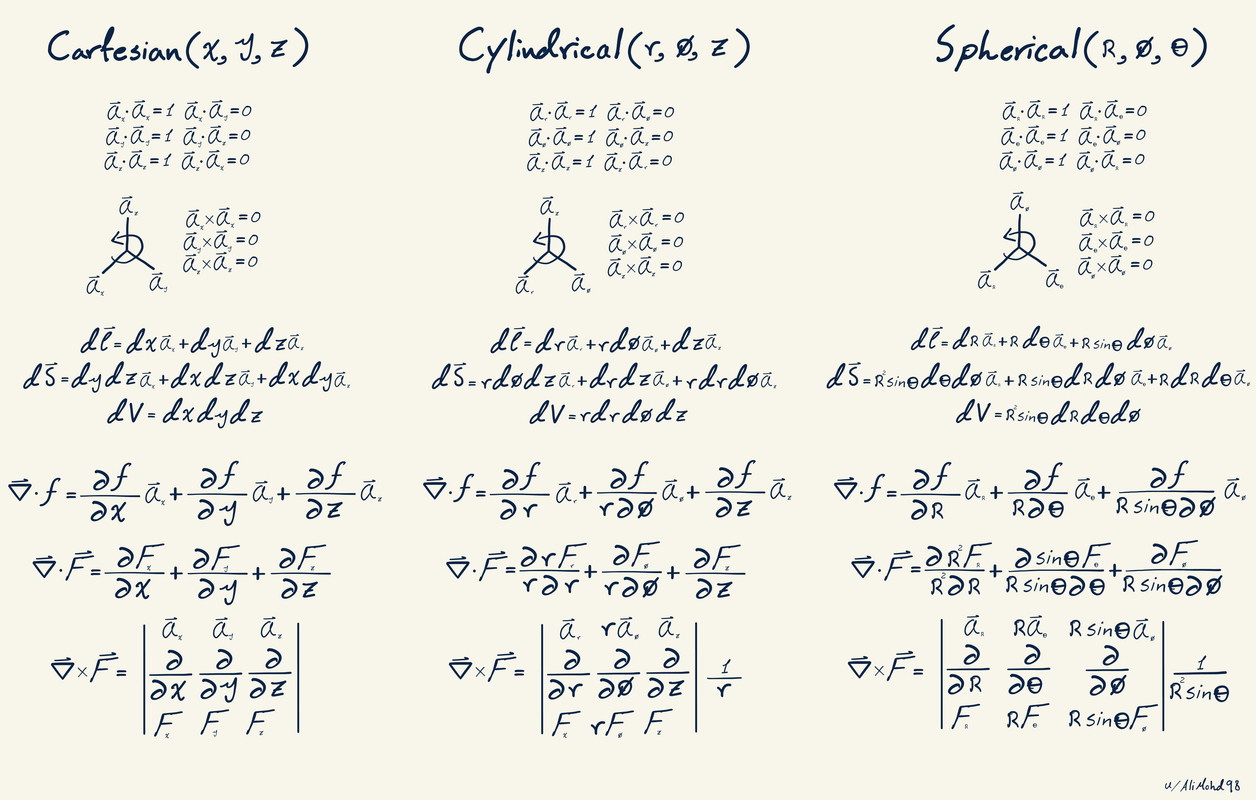 Cartesian(x, y, z)
a⃗ₓ·a⃗ₓ=1 a⃗ₓ·a⃗_y=0
a⃗_y·a⃗_y=1 a⃗_y·a⃗_z=0
a⃗_z·a⃗_z=1 a⃗_z·a⃗ₓ=0
a⃗_z
a⃗ₓ
a⃗_y
a⃗ₓ×a⃗ₓ=0
a⃗_y×a⃗_y=0
a⃗_z×a⃗_z=0
dl⃗=dxa⃗ₓ+dya⃗_y+dza⃗_z
dS⃗=dydza⃗ₓ+dxdza⃗_y+dxdya⃗_z
dV=dxdydz
∇⃗·f=∂f/∂x a⃗ₓ+∂f/∂y a⃗_y+∂f/∂z a⃗_z
∇⃗·F⃗=∂Fₓ/∂x+∂F_y/∂y+∂F_z/∂z
∇⃗×F⃗=
a⃗ₓ a⃗_y a⃗_z
∂/∂x ∂/∂y ∂/∂z
Fₓ F_y F_z
Cylindrical(r, ø, z)
a⃗_r·a⃗_r=1 a⃗_r·a⃗_ø=0
a⃗_ø·a⃗_ø=1 a⃗_ø·a⃗_z=0
a⃗_z·a⃗_z=1 a⃗_z·a⃗_r=0
a⃗_z
a⃗_r
a⃗_ø
a⃗_r×a⃗_r=0
a⃗_ø×a⃗_ø=0
a⃗_z×a⃗_z=0
dl⃗=dra⃗_r+rdøa⃗_ø+dza⃗_z
dS⃗=rdødza⃗_r+drdza⃗_ø+rdrdøa⃗_z
dV=rdrdødz
∇⃗·f=∂f/∂r a⃗_r+∂f/r∂ø a⃗_ø+∂f/∂z a⃗_z
∇⃗·F⃗=∂rF_r/r∂r+∂F_ø/r∂ø+∂F_z/∂z
∇⃗×F⃗=
a⃗_r ra⃗_ø a⃗_z
∂/∂r ∂/∂ø ∂/∂z 1/r
Fₓ rF_ø F_z
Spherical(R, ø, θ)
a⃗_R·a⃗_R=1 a⃗_R·a⃗_θ=0
a⃗_θ·a⃗_θ=1 a⃗_θ·a⃗_ø=0
a⃗_ø·a⃗_ø=1 a⃗_ø·a⃗_R=0
a⃗_ø
a⃗_R
a⃗_θ
a⃗_R×a⃗_R=0
a⃗_θ×a⃗_θ=0
a⃗_ø×a⃗_ø=0
dl⃗=dRa⃗_R+Rdθa⃗_θ+Rsinθdøa⃗_ø
dS⃗=R²sinθdθdøa⃗_R+RsinθdRdøa⃗_θ+RdRdθa⃗_ø
dV=R²sinθdRdθdø
∇⃗·f=∂f/∂R a⃗_R+∂f/R∂θ a⃗_θ+∂f/Rsinθ∂ø a⃗_ø
∇⃗·F⃗=∂R²F_R/R²∂R+∂sinθF_θ/Rsinθ∂θ+∂F_ø/Rsinθ∂ø
∇⃗×F⃗=
a⃗_R Ra⃗_θ Rsinθa⃗_ø
∂/∂R ∂/∂θ ∂/∂ø 1/R²sinθ
F_R RF_θ RsinθF_ø
u/AliMohd98